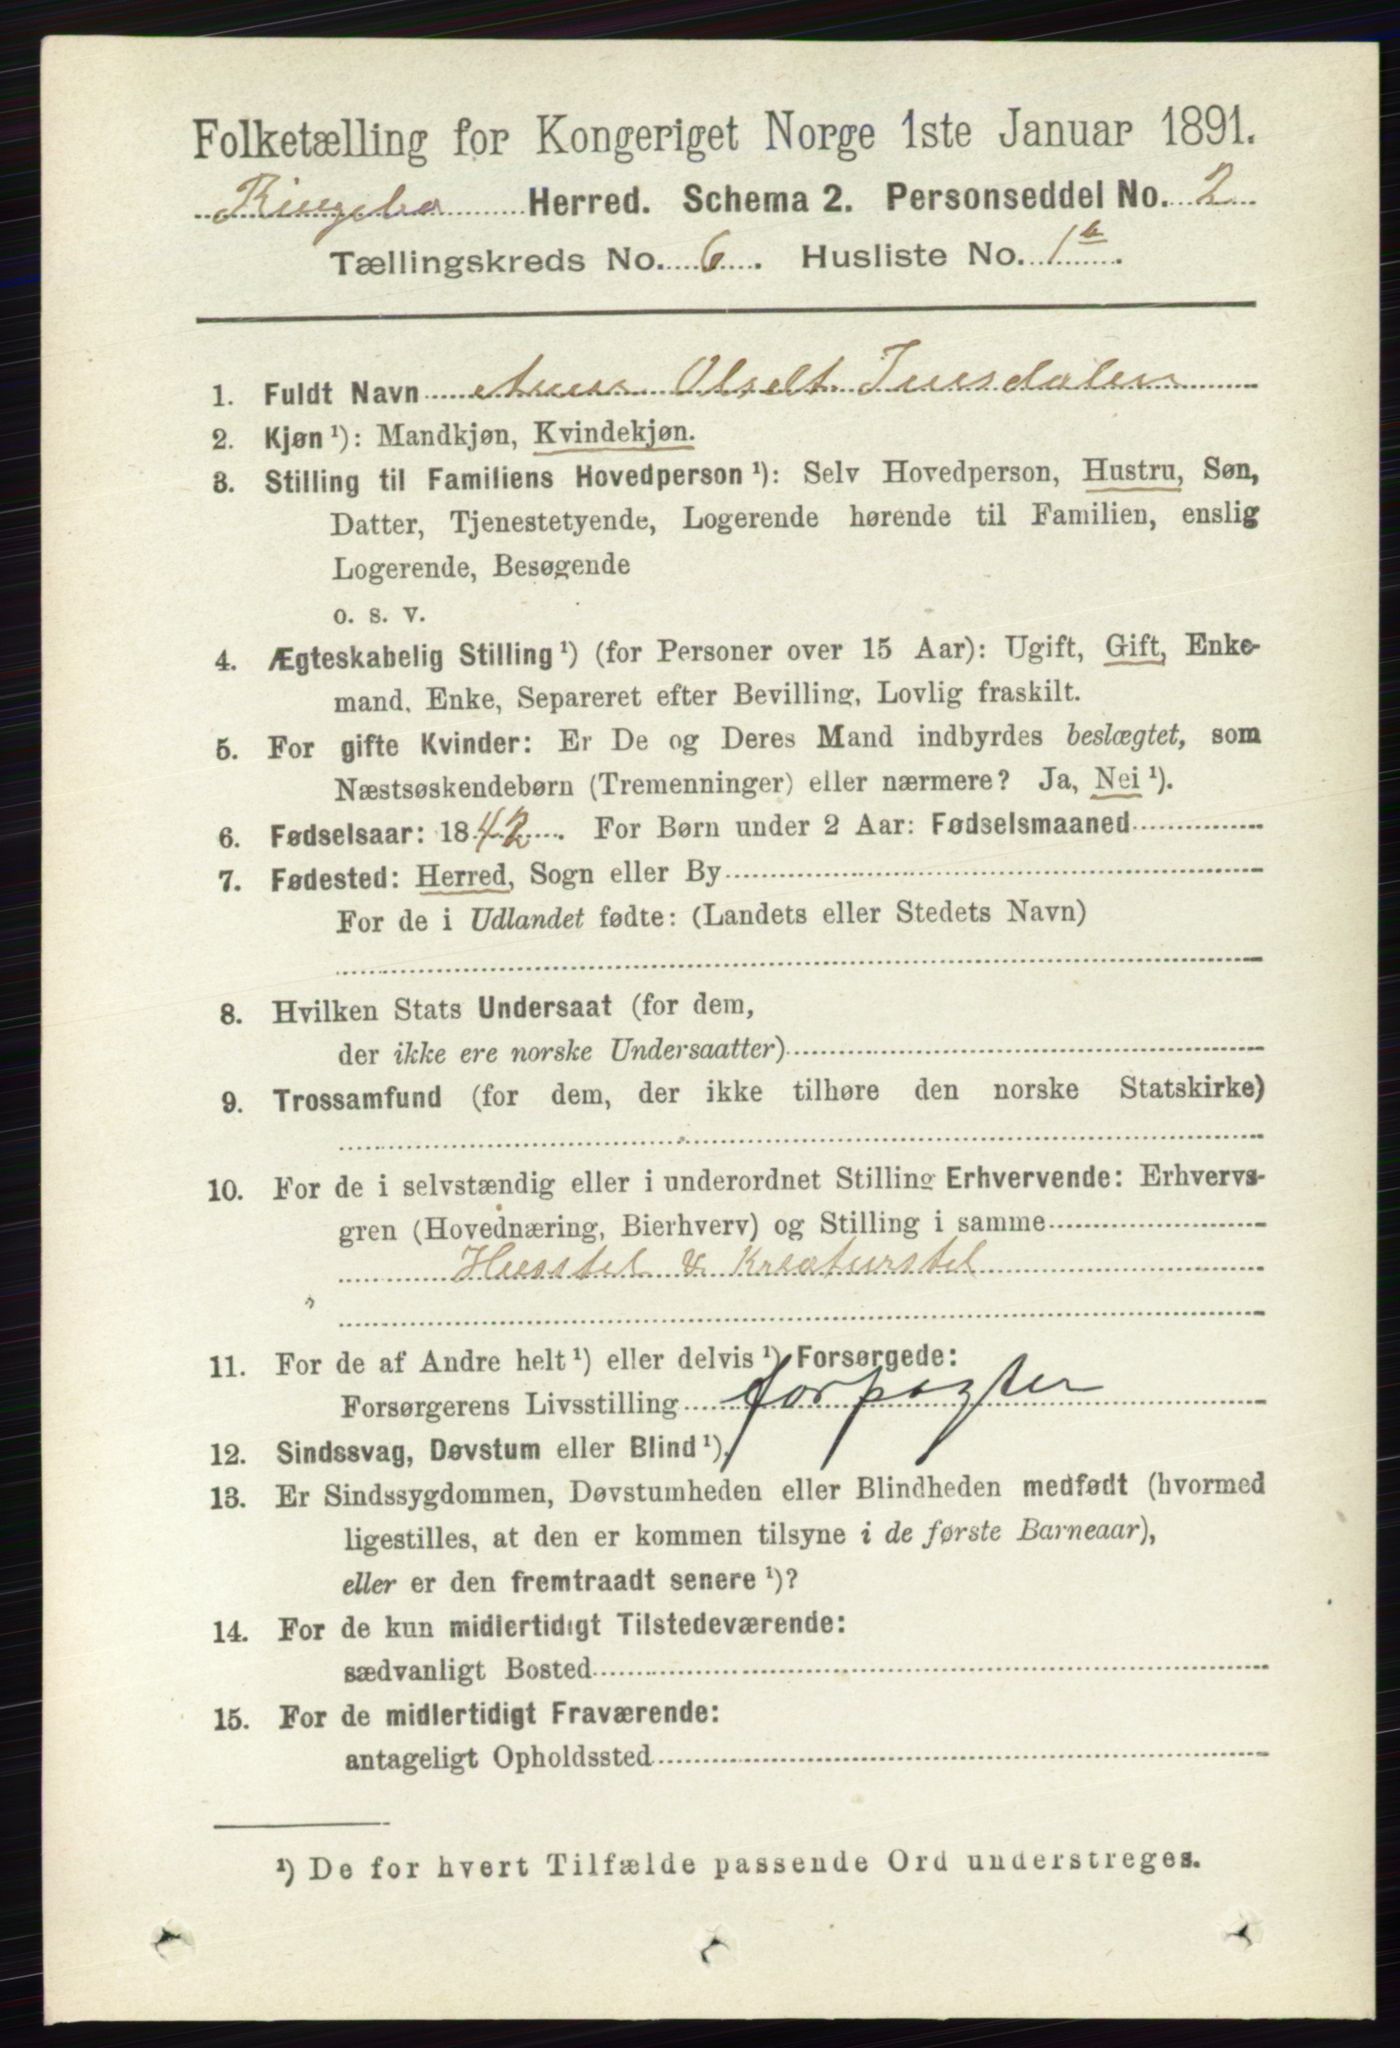 Folketælling for Kongeriget Norge 1ste Januar 1891.
Ringebo Herred. Schema 2. Personseddel No. 2
Tællingskreds No. 6. Husliste No. 1b.
1. Fuldt Navn Olsdt.
2. Kjøn ¹): Mandkjøn, Kvindekjøn.
3. Stilling til Familiens Hovedperson ¹): Selv Hovedperson, Hustru, Søn,
Datter, Tjenestetyende, Logerende hørende til Familien, enslig
Logerende, Besøgende
o. s. v.
4. Ægteskabelig Stilling ¹) (for Personer over 15 Aar): Ugift, Gift, Enke-
mand, Enke, Separeret efter Bevilling, Lovlig fraskilt.
5. For gifte Kvinder: Er De og Deres Mand indbyrdes beslægtet, som
Næstsøskendebørn (Tremenninger) eller nærmere? Ja, Nei ¹).
6. Fødselsaar: 1842. For Børn under 2 Aar: Fødselsmaaned
7. Fødested: Herred, Sogn eller By
For de i Udlandet fødte: (Landets eller Stedets Navn)
8. Hvilken Stats Undersaat (for dem,
der ikke ere norske Undersaatter)
9. Trossamfund (for dem, der ikke tilhøre den norske Statskirke)
10. For de i selvstændig eller i underordnet Stilling Erhvervende: Erhvervs-
gren (Hovednæring, Bierhverv) og Stilling i samme
Husstel & Kreaturstel
11. For de af Andre helt ¹) eller delvis ¹) Forsørgede:
Forsørgerens Livsstilling forpagter
12. Sindssvag, Døvstum eller Blind ¹),
13. Er Sindssygdommen, Døvstumheden eller Blindheden medfødt (hvormed
ligestilles, at den er kommen tilsyne i de første Barneaar),
eller er den fremtraadt senere ¹)?
14. For de kun midlertidigt Tilstedeværende:
sædvanligt Bosted
15. For de midlertidigt Fraværende:
antageligt Opholdssted
¹) De for hvert Tilfælde passende Ord understreges.